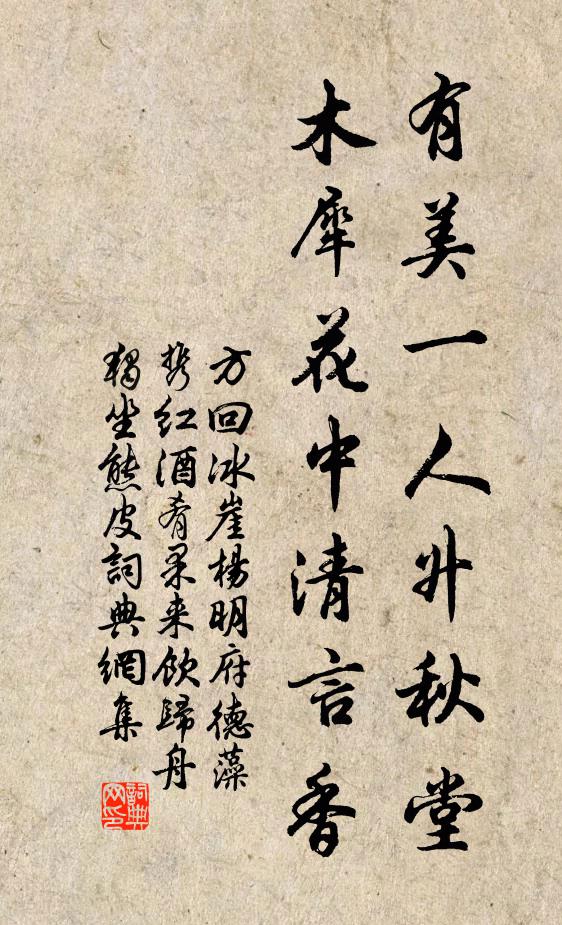 有美一人升秋堂
木犀花中清言香
方回冰崖楊明府德藻
携紅酒肴果来飲歸舟
獨坐熊皮詞典網集
詞典网印